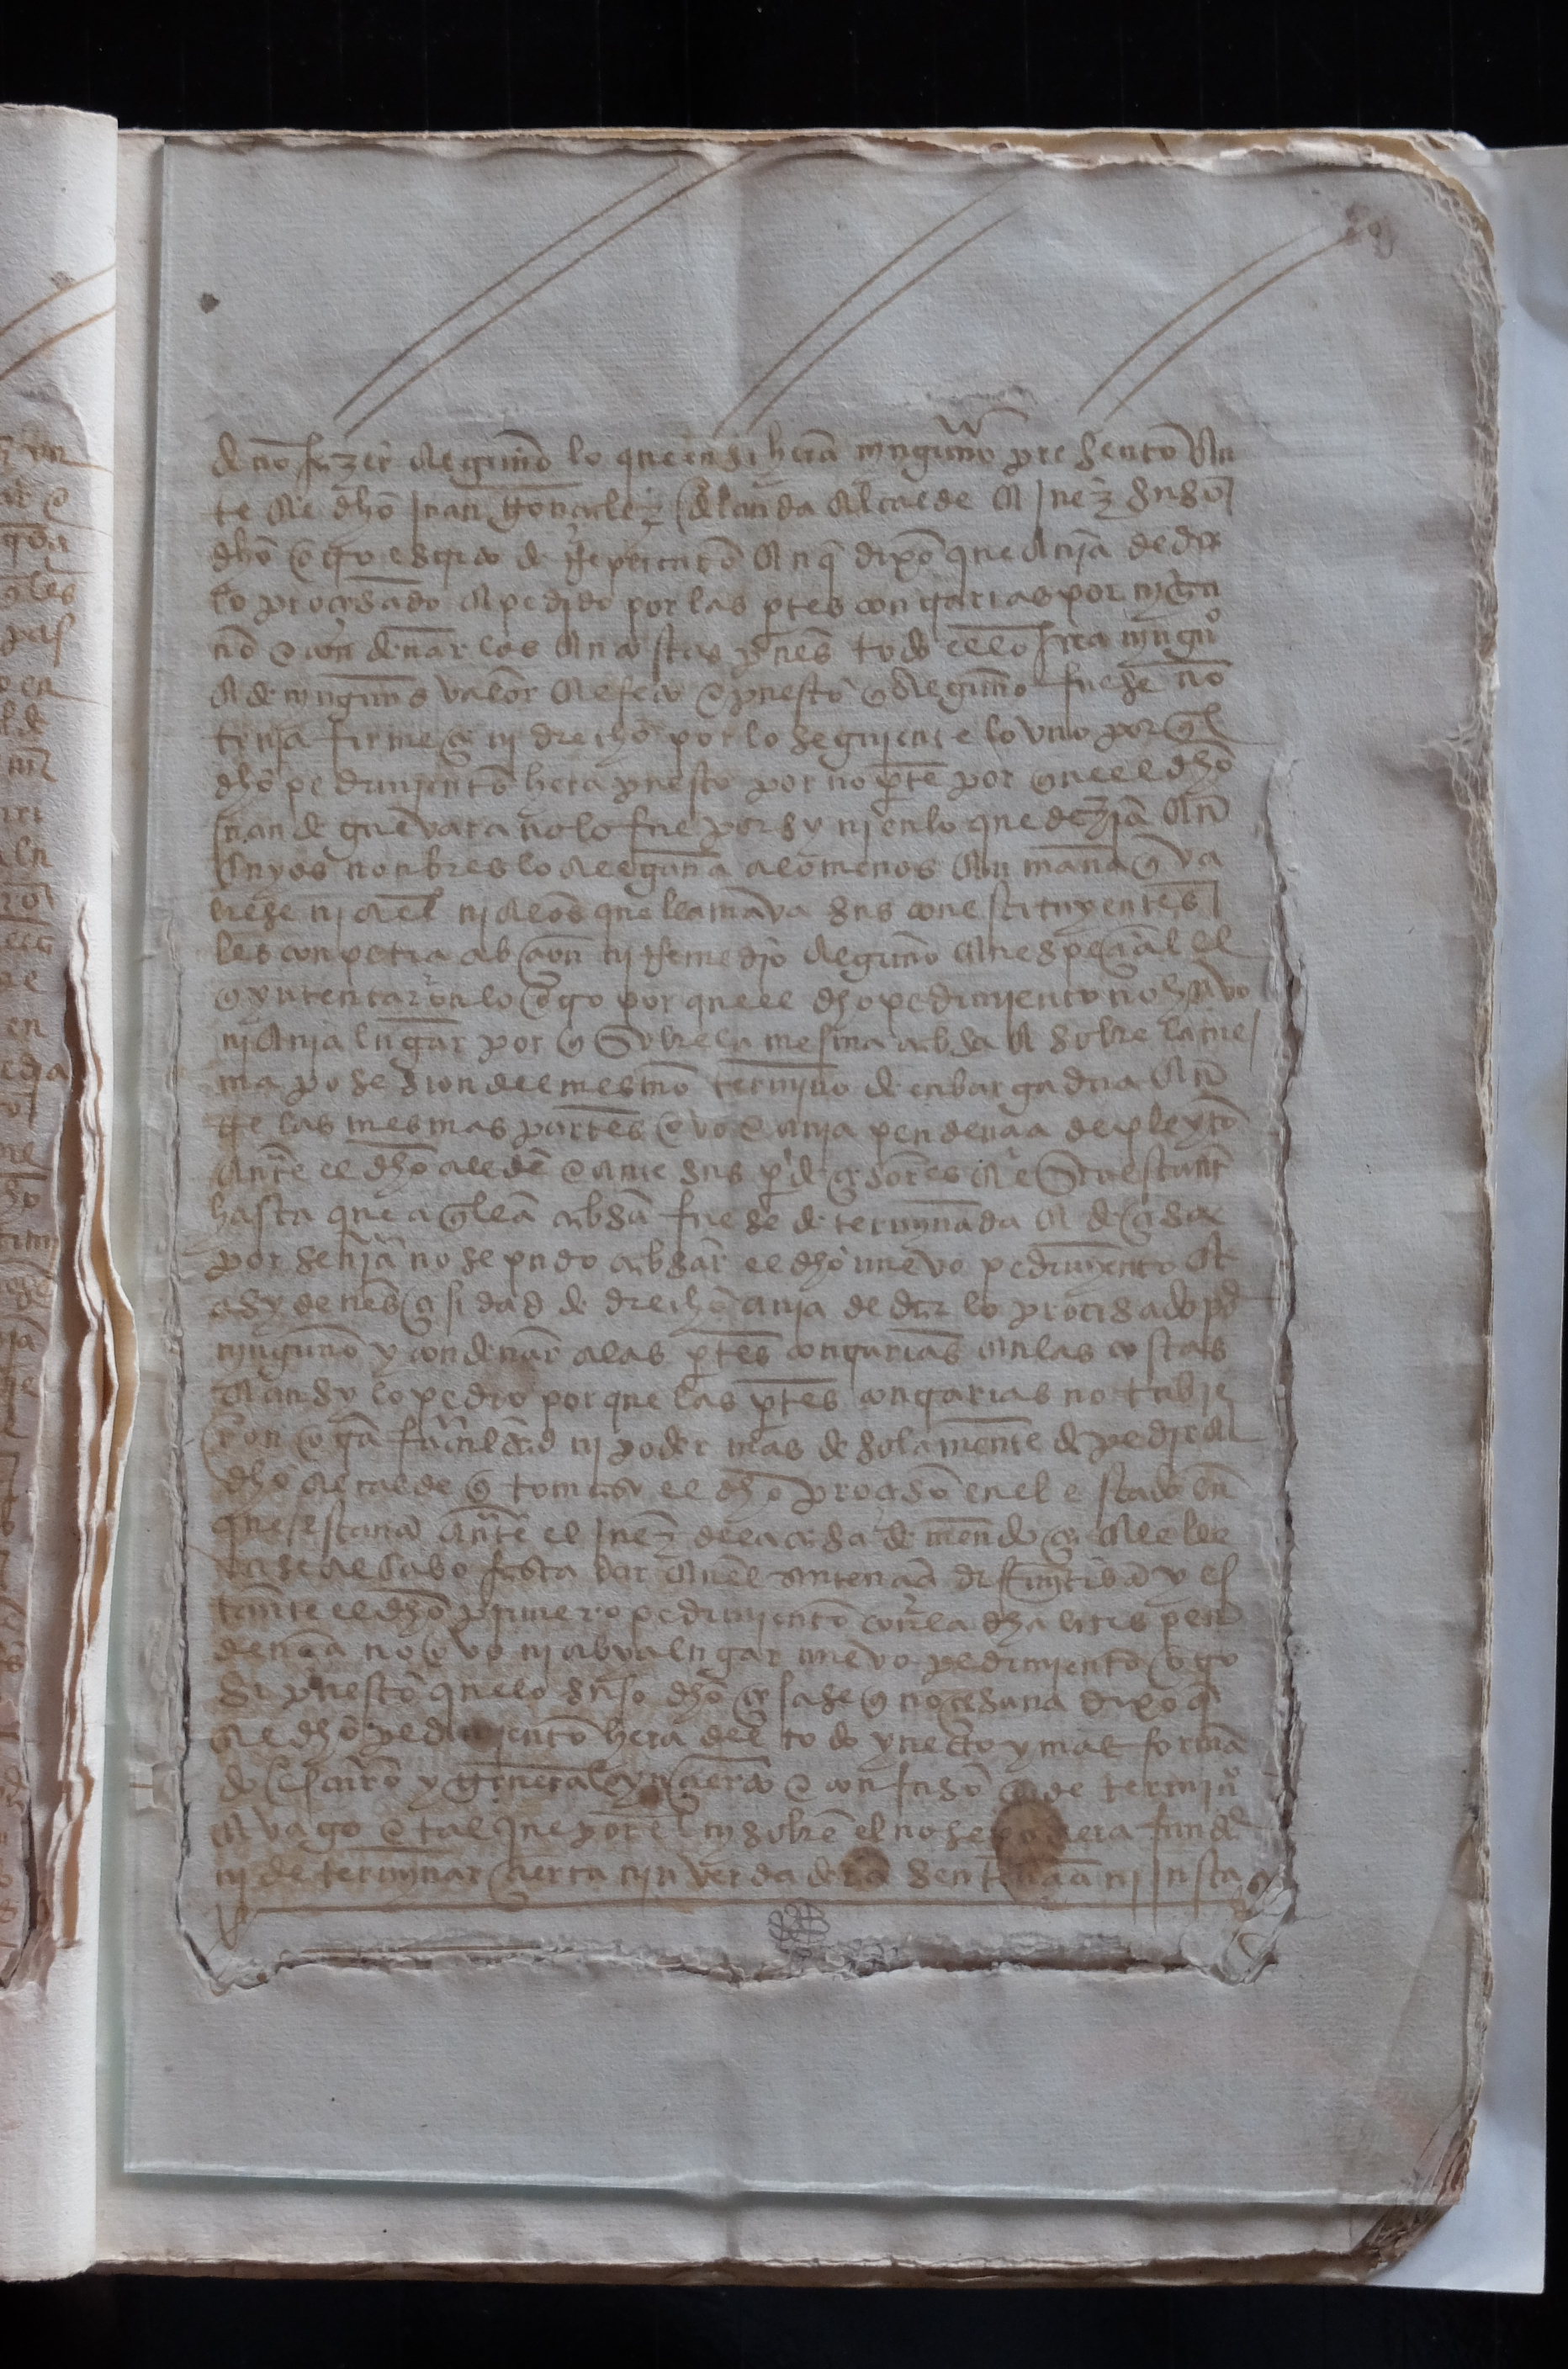 de no fazer alguno lo que en si hera ninguno presento an
te el dho juan gonçalez de landa alcalde e juez suso
dho que dixo que avia de dar
lo proçesado e pedido por las ptes contrarias por nigu
no e condenar los en costas pues todo ello hera ningº
e de ningund valor e efeto e puesto q alguno fuese no
tenja firmeza nj drecho por lo seguiente lo vno por ql
dho pedimjento hera puesto por no pte por quel dho
juan de guevara no lo fue por sy nj en lo que dezia en
cuyos nonbres lo alegava a lo menos en manera q va
liese nj a el nj a los que llamava sus constituyentes
les conpetia abçion nj remedio alguno en espeçial el
q yntentaron lo otro por quel dho pedimiento no hovo
nj avia lugar por q sobre la mesma cabsa e sobre la mes
ma posesion del mesmo termino de enbargada en
tre las mesmas partes ovo e avia pendençia de pleyto
ante el dho alcde e ante sus pdeçesores e estante
hasta que aqlla cabsa fuese determynada e deçisa
por senja no se pudo cabsar el dho nuevo pedimyento e
asy de nesçesidad de drecho avia de dar lo proçesado por
ninguno y condenar a las ptes contrarias en las costas
e ansy lo pedio porque las ptes contrarias no tubie
ron otra facultad nj poder mas de solamente de pedir al
dho alcalde q tomase el dho proçeso en el estado en
questava ante el juez de la casa de mendoça e lle
vase al cabo fasta dar en el sentençia difinitiba y es
tante el dho primero pedimjento con la dha litis pen
dençia no ovo nj abya lugar nuevo pedimiento otro
si puesto quelo suso dho çesase q no çesava dixo q
el dho pedimjento hera del todo ynecto y mal forma
do escuro y general ynçierto e confuso de termjº
e vago e tal que por el ny sobre el no se podiera fundar
nj determynar çierta njn verdadera sentençia nj justa